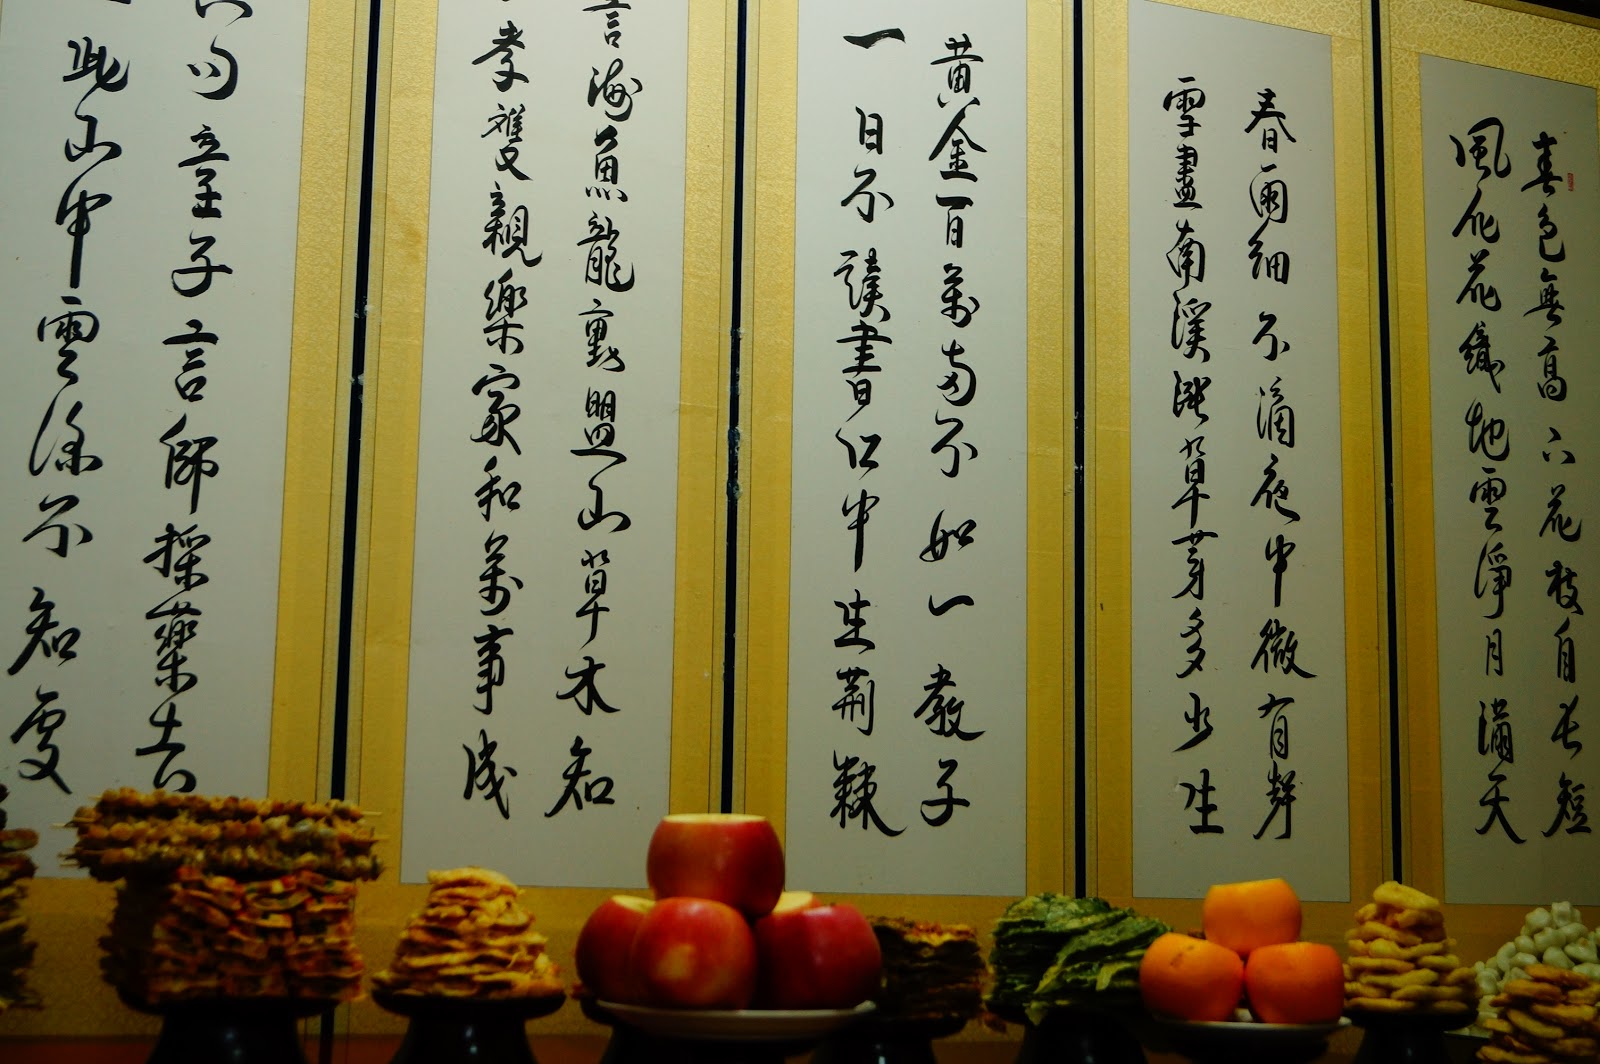 春色無高下花枝自長短
風花織地雲淨月滿天
春雨細不滴夜中微有聲
雪盡南溪漲草芽多少生
黃金百萬兩不如一教子
一日不讀書口中生荊棘
海魚龍動盟山草木知
孝雙親樂家和萬事成
問童子言師採藥去
此山中雲深不知處